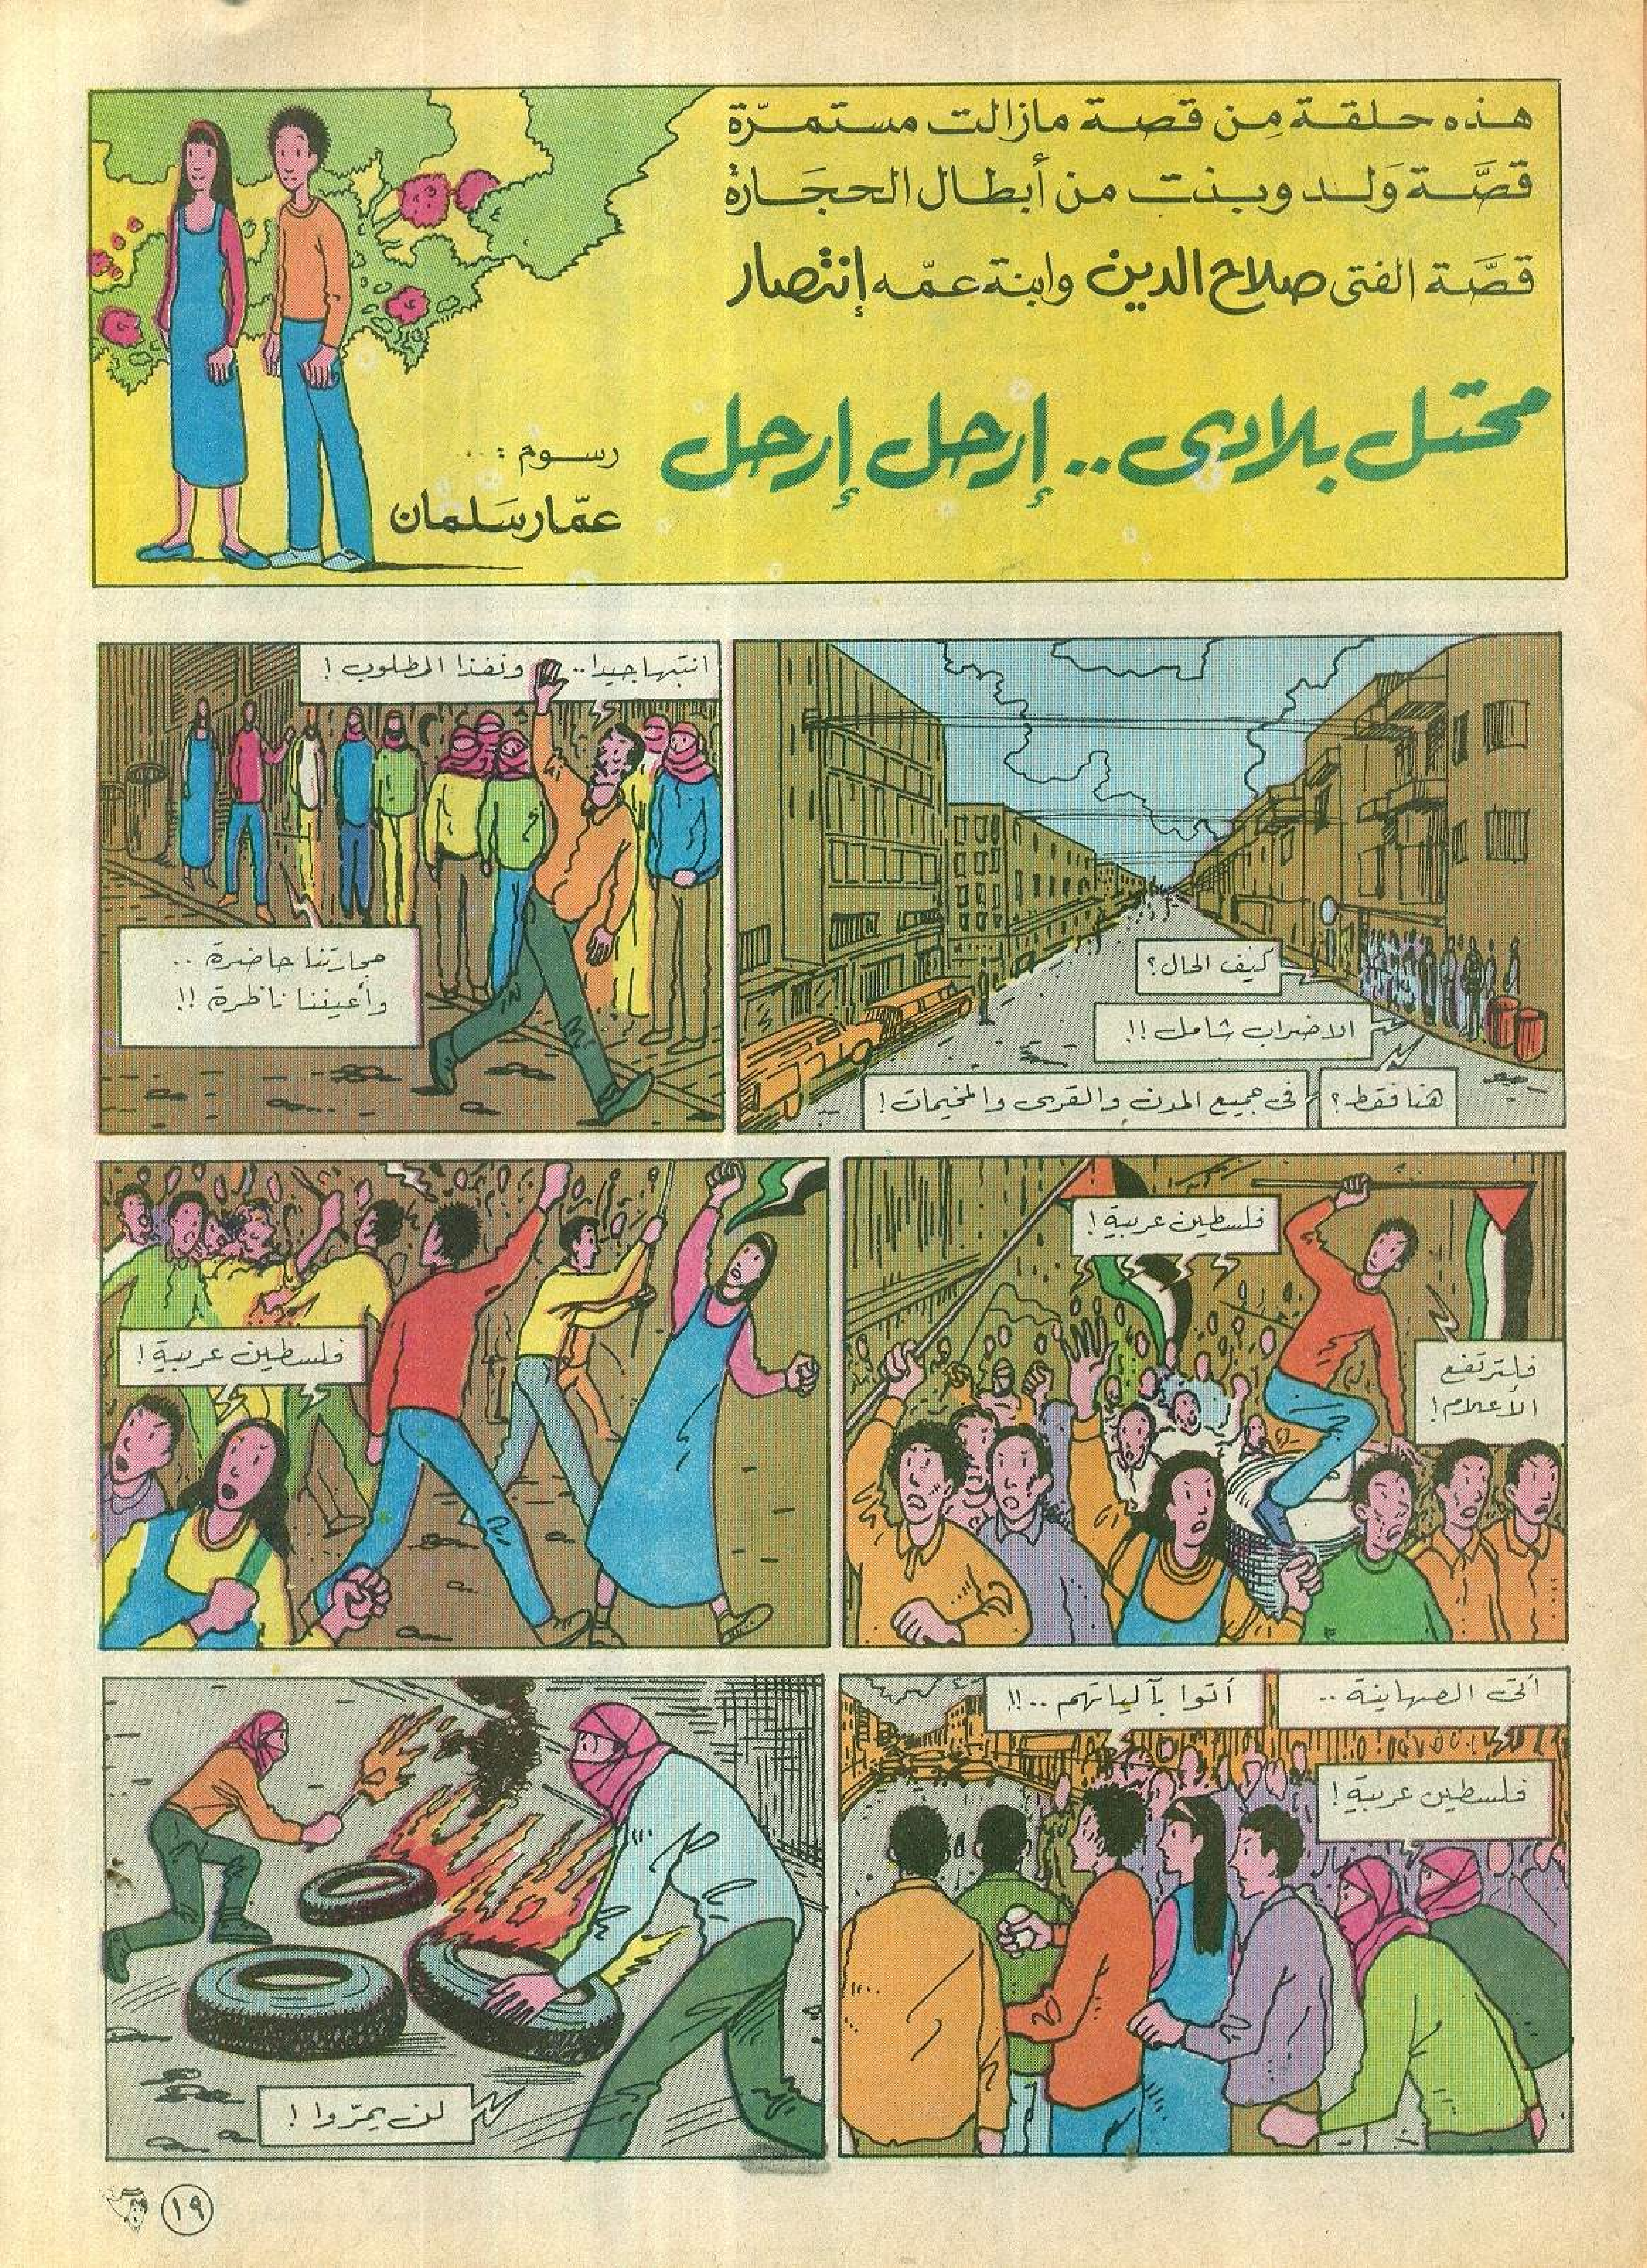 هذه حلقة مِن قصة مازالت مستمرّة
قصَّة وَلد وبنت من أبطال الحجَارة
قصَّة الفتى صلاح الدين وابنة عمّه إنتصار
محتل بلادي.. إرحل إرحل
رسوم :...
عمّار سَلمان
كيف الحال؟
الاضراب شامل !!
هنا فقط؟
في جميع المدن والقرى والمخيمات!
انتبها جيدا.. ونفذا المطلوب!
حجارتنا حاضرة ..
وأعيننا ناظرة !!
فلسطين عربية!
فلترتفع
الأعلام!
فلسطين عربية!
أتى الصهاينة ..
أتوا بآلياتهم ..!!
فلسطين عربية!
لن يمرّوا!
١٩